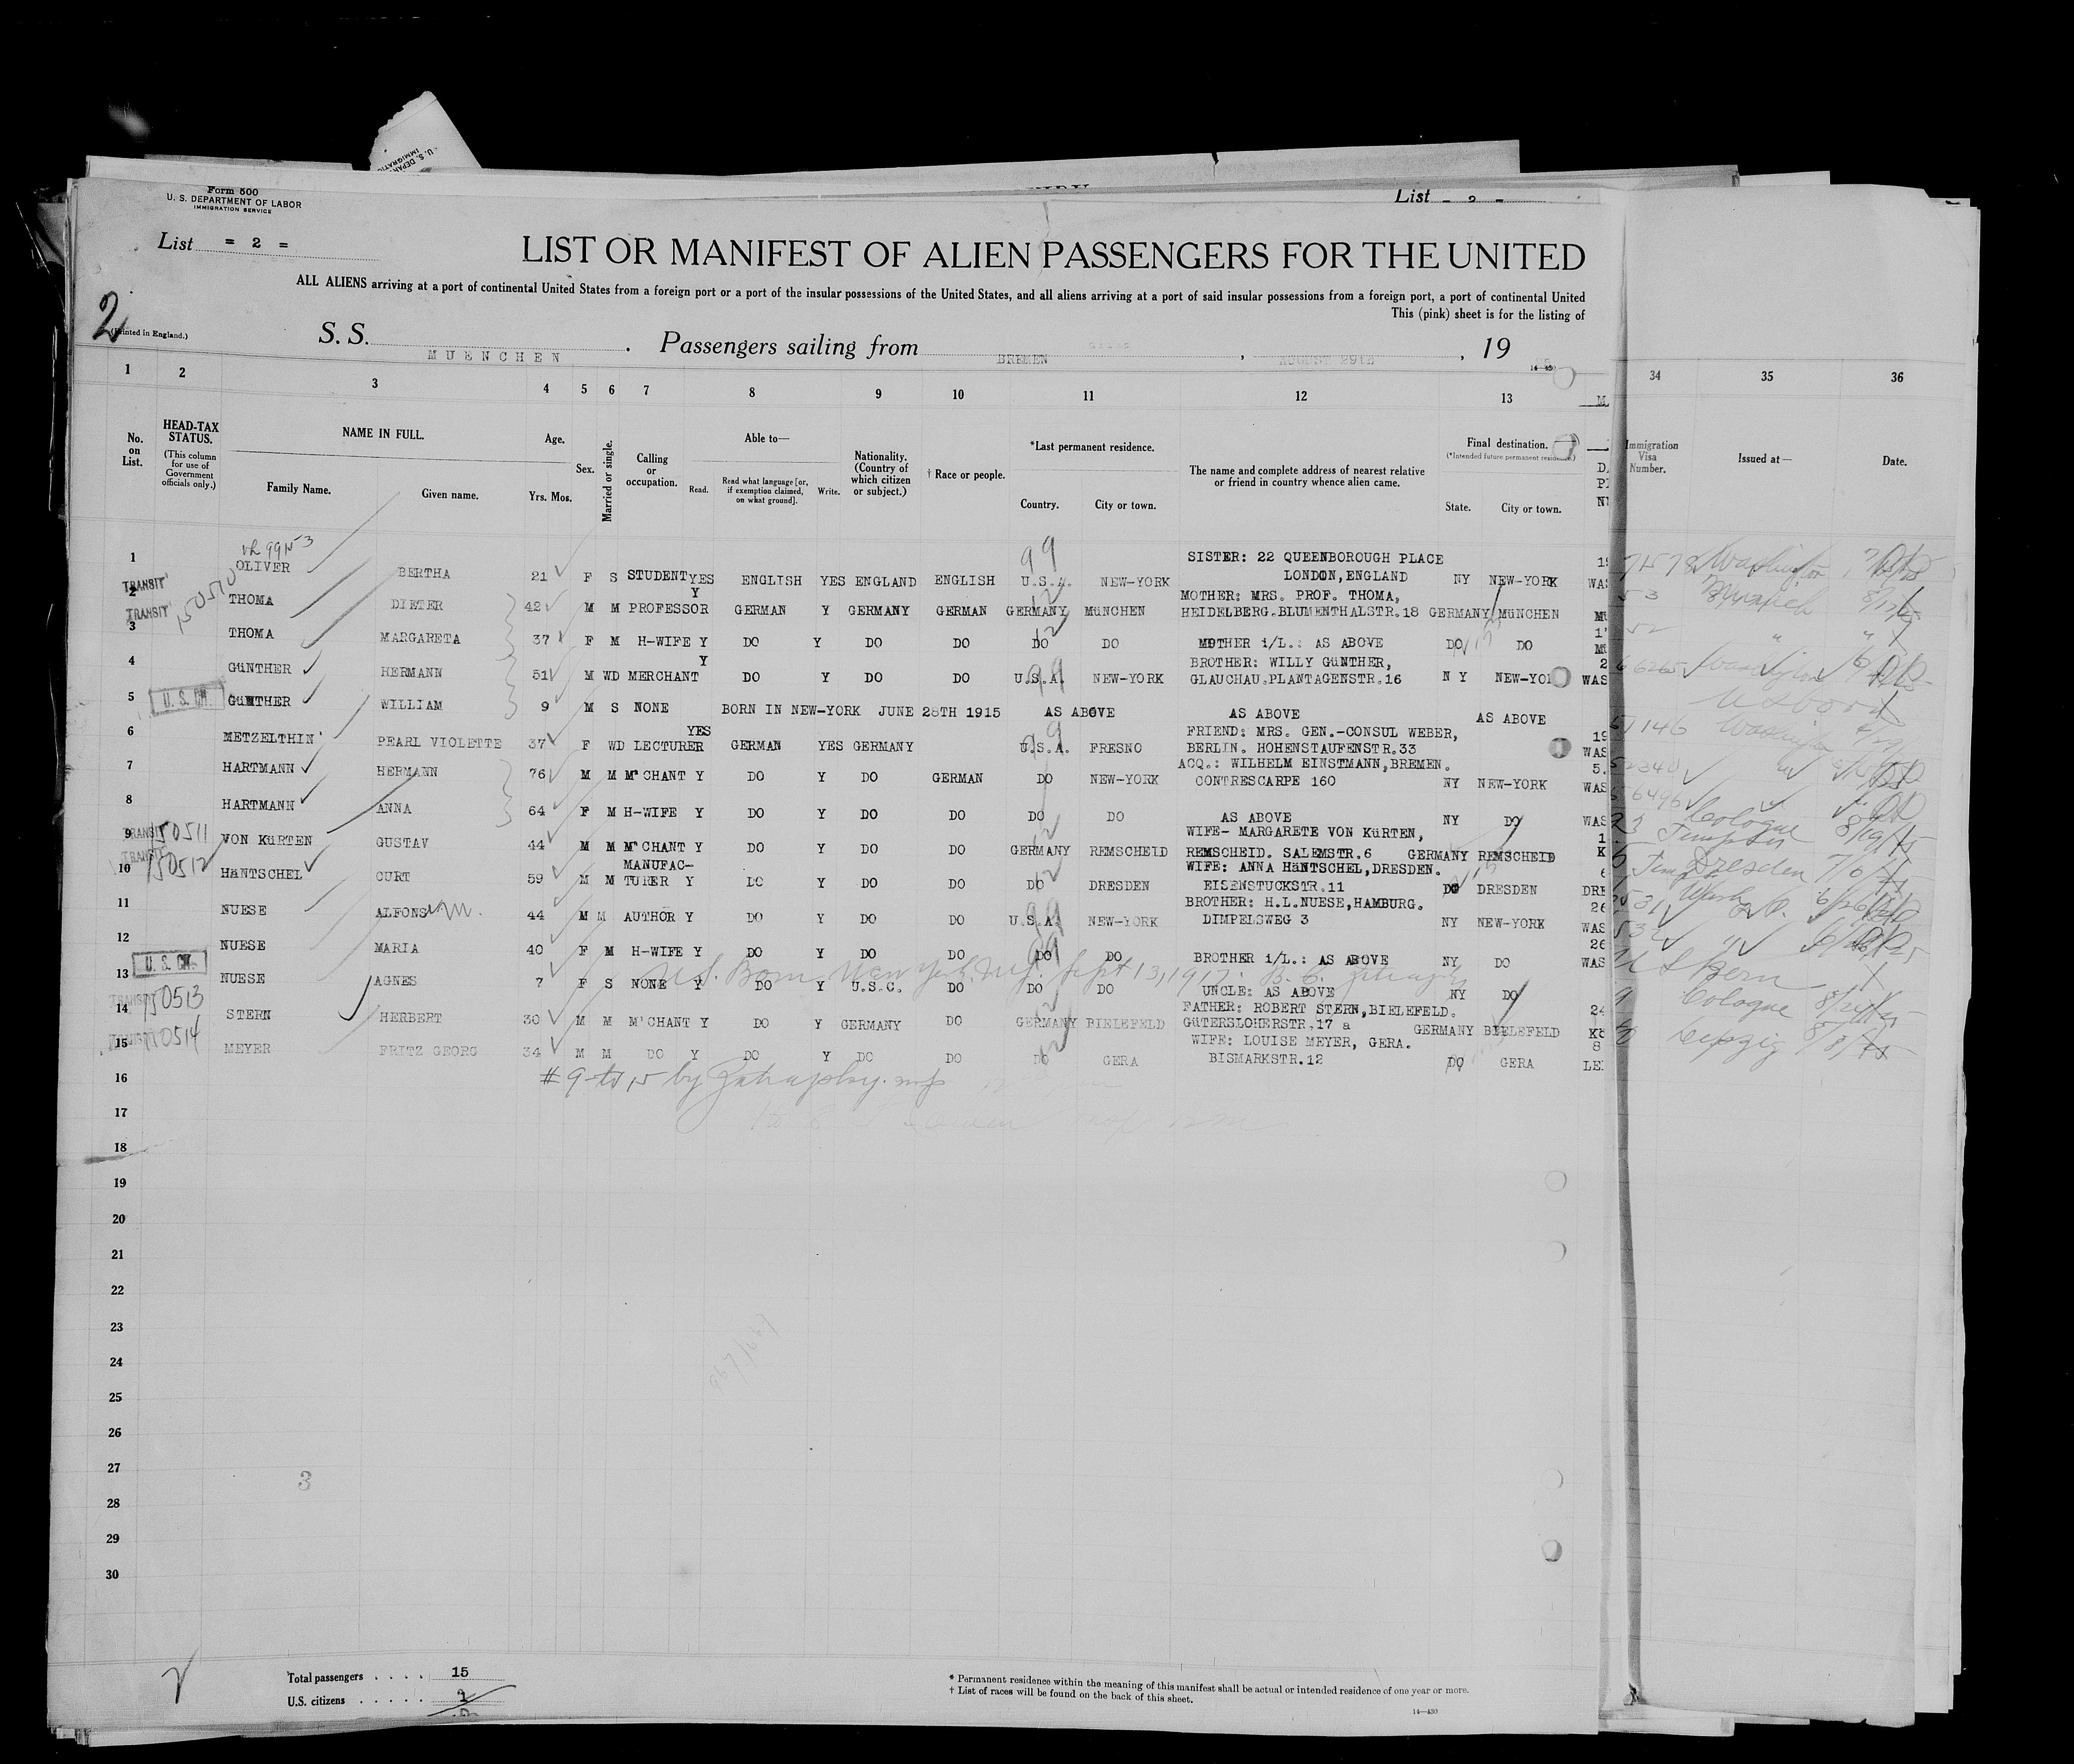 U. S. DEPAR
IMMIGRATI
List = 2 =
Form 500
U. S. DEPARTMENT OF LABOR
IMMIGRATION SERVICE
List = 2 =
LIST OR MANIFEST OF ALIEN PASSENGERS FOR THE UNITED
ALL ALIENS arriving at a port of continental United States from a foreign port or a port of the insular possessions of the United States, and all aliens arriving at a port of said insular possessions from a foreign port, a port of continental United
This (pink) sheet is for the listing of
2
(Printed in England.)
S. S. MUENCHEN . Passengers sailing from BREMEN , AUGUST 29th , 19
1 2 3 4 5 6 7 8 9 10 11 12 13 34 35 36
No. on List. HEAD-TAX STATUS. (This column for use of Government officials only.) NAME IN FULL. Family Name. Given name. Age. Yrs. Mos. Sex. Married or single. Calling or occupation. Able to— Read. Read what language [or, if exemption claimed, on what ground]. Write. Nationality. (Country of which citizen or subject.) † Race or people. *Last permanent residence. Country. City or town. The name and complete address of nearest relative or friend in country whence alien came. Final destination. (*Intended future permanent residence.) State. City or town. Immigration Visa Number. Issued at— Date.
1 OLIVER BERTHA 21 F S STUDENT YES ENGLISH YES ENGLAND ENGLISH 99 U.S.A. NEW-YORK SISTER: 22 QUEENBOROUGH PLACE LONDON,ENGLAND NY NEW-YORK WAS Washington
TRANSIT 2 150510 THOMA DIETER 42 M M PROFESSOR Y GERMAN Y GERMANY GERMAN GERMANY MüNCHEN MOTHER: MRS. PROF. THOMA, HEIDELBERG.BLUMENTHALSTR.18 GERMANY MüNCHEN 53 Munich
TRANSIT 3 THOMA MARGARETA 37 F M H-WIFE Y DO Y DO DO DO DO MOTHER i/L.: AS ABOVE DO DO 52 " "
4 GüNTHER HERMANN 51 M WD MERCHANT Y DO Y DO DO 99 U.S.A. NEW-YORK BROTHER: WILLY GüNTHER, GLAUCHAU.PLANTAGENSTR.16 N Y NEW-YO WAS Washington
5 U. S. CIT. GüNTHER WILLIAM 9 M S NONE BORN IN NEW-YORK JUNE 28TH 1915 AS ABOVE AS ABOVE AS ABOVE US born
6 METZELTHIN PEARL VIOLETTE 37 F WD LECTURER YES GERMAN YES GERMANY 99 U.S.A. FRESNO FRIEND: MRS. GEN.-CONSUL WEBER, BERLIN. HOHENSTAUFENSTR.33 WAS 57146 Washington
7 HARTMANN HERMANN 76 M M M'CHANT Y DO Y DO GERMAN DO NEW-YORK ACQ.: WILHELM EINSTMANN,BREMEN. CONTRESCARPE 160 NY NEW-YORK WAS 52340
8 HARTMANN ANNA 64 F M H-WIFE Y DO Y DO DO DO DO AS ABOVE NY DO WAS 56496
TRANSIT 9 150511 VON KüRTEN GUSTAV 44 M M M'CHANT Y DO Y DO DO GERMANY REMSCHEID WIFE- MARGARETE VON KüRTEN, REMSCHEID. SALEMSTR.6 GERMANY REMSCHEID Cologne 8/19/25
TRANSIT 10 150512 HäNTSCHEL CURT 59 M M MANUFAC-TURER Y DO Y DO DO DO DRESDEN WIFE: ANNA HäNTSCHEL,DRESDEN. EISENSTUCKSTR.11 DO DRESDEN DRE Dresden
11 NUESE ALFONS 44 M M AUTHOR Y DO Y DO DO 99 U.S.A. NEW-YORK BROTHER: H.L.NUESE,HAMBURG. DIMPELSWEG 3 NY NEW-YORK WAS
12 NUESE MARIA 40 F M H-WIFE Y DO Y DO DO 99 DO DO BROTHER i/L.: AS ABOVE NY DO WAS
U.S. Born New York, N.Y. Sept 13, 1917.
13 U. S. CIT. NUESE AGNES 7 F S NONE Y DO Y U.S.C. DO DO DO UNCLE: AS ABOVE NY DO U S Born
TRANSIT 14 150513 STERN HERBERT 30 M M M'CHANT Y DO Y GERMANY DO GERMANY BIELEFELD FATHER: ROBERT STERN,BIELEFELD. GüTERSLOHERSTR.17 a GERMANY BIELEFELD Cologne
TRANSIT 15 150514 MEYER FRITZ GEORG 34 M M DO Y DO Y DO DO DO GERA WIFE: LOUISE MEYER, GERA. BISMARKSTR.12 DO GERA Leipzig
16
17
18
19
20
21
22
23
24
25
26
27
3
28
29
30
Total passengers . . . . 15
U.S. citizens . . . . .
* Permanent residence within the meaning of this manifest shall be actual or intended residence of one year or more.
† List of races will be found on the back of this sheet.
14—430